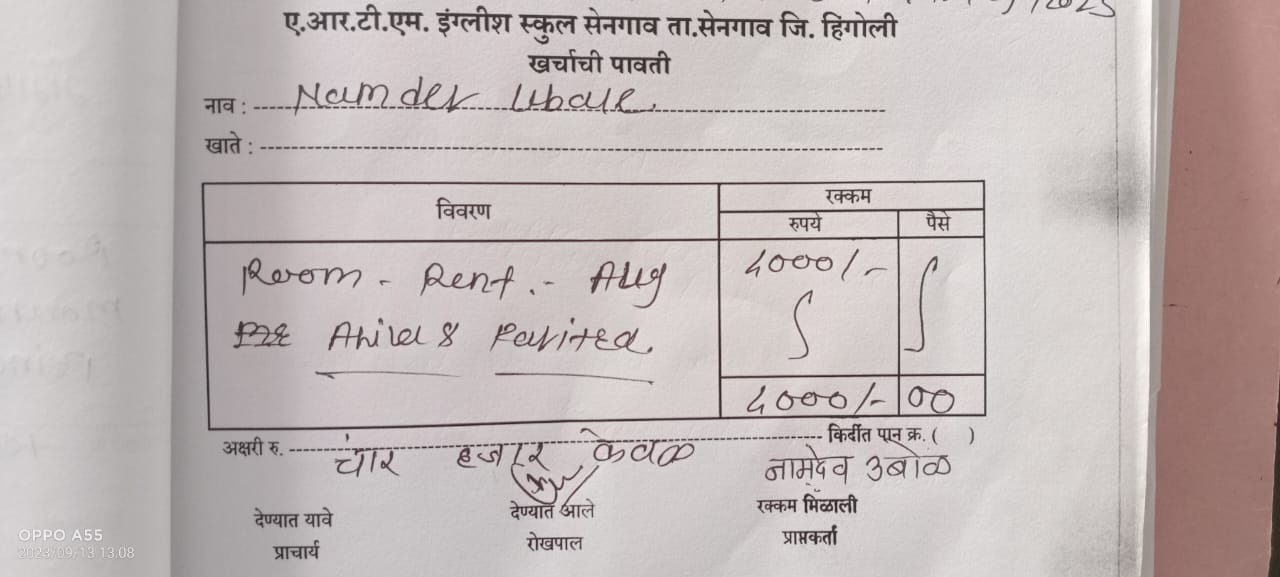 /2023
ए.आर.टी.एम. इंग्लीश स्कुल सेनगाव ता.सेनगाव जि. हिंगोली
खर्चाची पावती
नाव : Namdev Ubale.
खाते :
विवरण रक्कम
रुपये पैसे
Room - Rent. - Aug 4000/-
4000/- 00
अक्षरी रु. चार हजार केवळ किर्दीत पान क्र. ( )
नामदेव उबाळे
देण्यात यावे देण्यात आले रक्कम मिळाली
प्राचार्य रोखपाल प्राप्तकर्ता
OPPO A55
2023/09/13 13:08